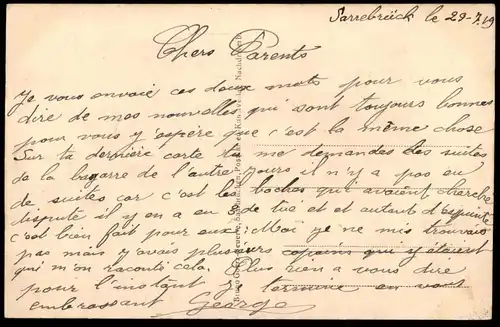 Sarrebrück le 29-7.19
Chers Parents
Je vous envoie ces deux mots pour vous
dire de mes nouvelles qui sont toujours bonnes
pour vous y espère que c'est la même chose
Sur ta dernière carte tu me demandes des suites
de la bagarre de l'autre jours il n'y a pas eu
de suites car c'est les boches qui avaient cherché
dispute il y en a eu 3 de tué et et autant
c'est bien fait pour eux. Moi je ne mis trouvais
pas mais y avais plusieurs copains qui y étaient
qui m'on raconté cela. Plus rien a vous dire
pour l'instant je termine en vous
embrassant George